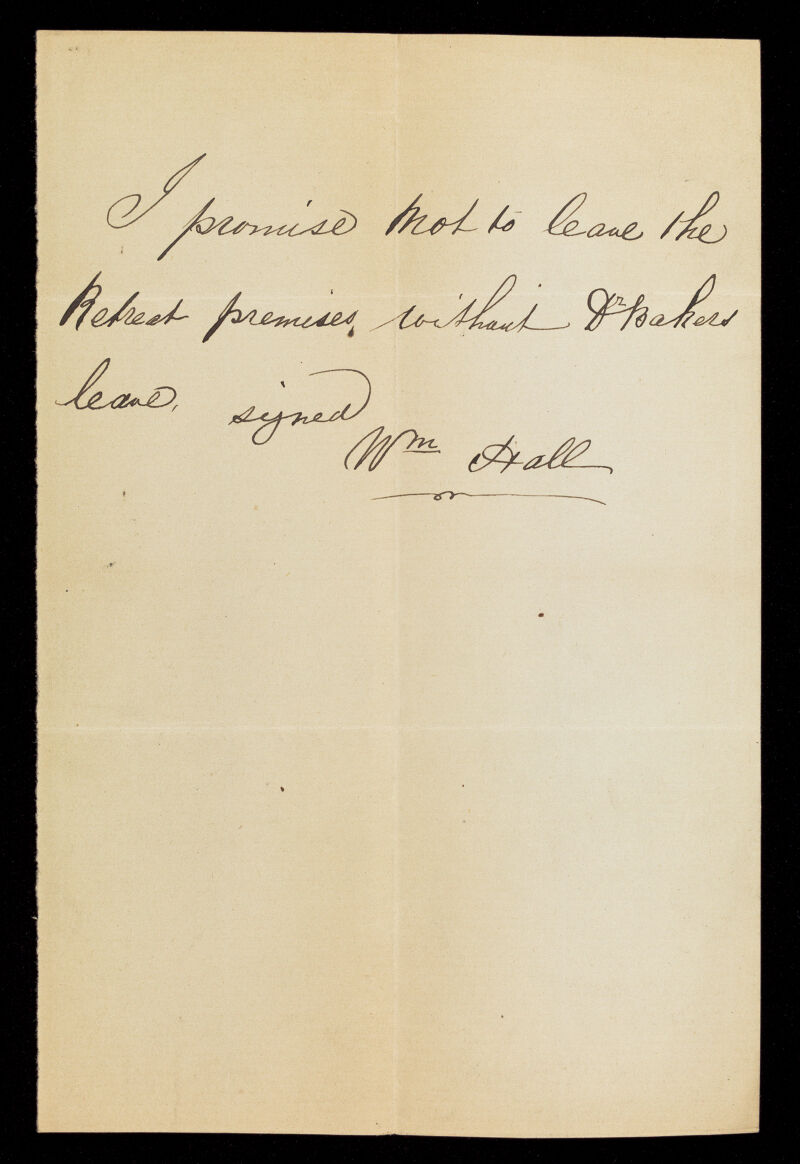 I promise not to leave the
Retreat premises, without Dr Bakers
leave. signed
Wm Hall